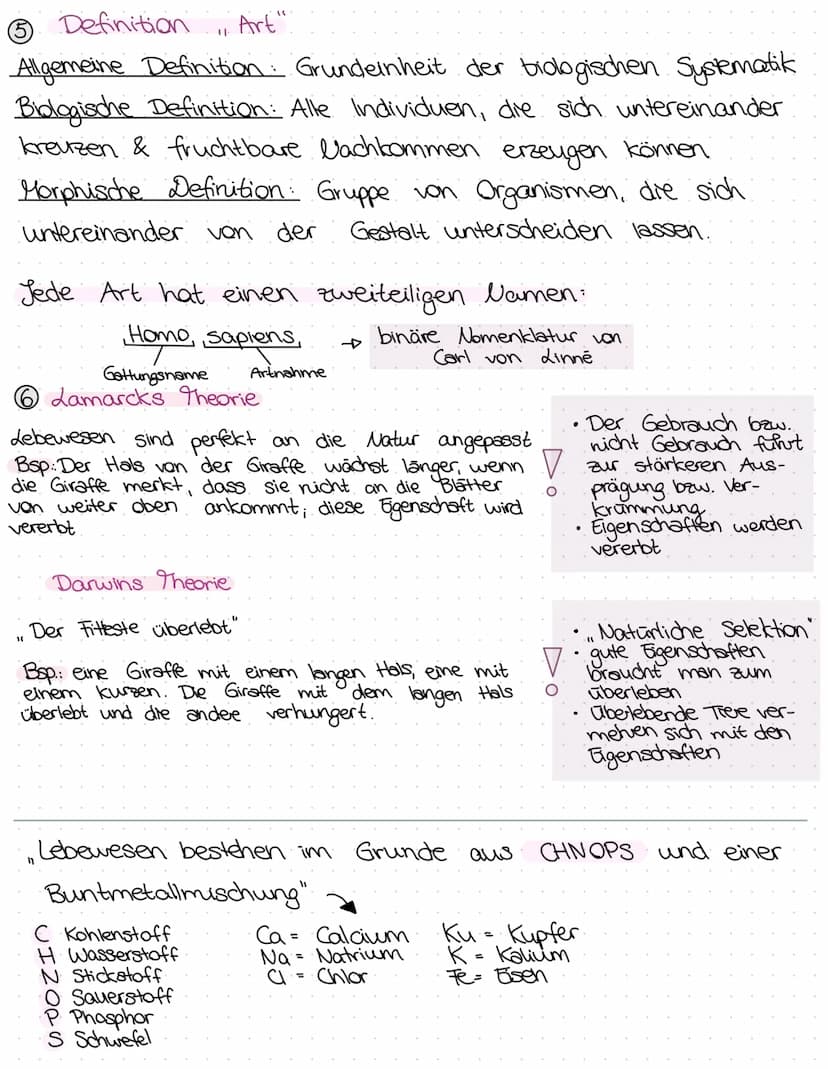 ⑤ Definition „Art"
Allgemeine Definition: Grundeinheit der biologischen Systematik
Biologische Definition: Alle Individuen, die sich untereinander
kreuzen & fruchtbare Nachkommen erzeugen können
Morphische Definition: Gruppe von Organismen, die sich
untereinander von der Gestalt unterscheiden lassen.
Jede Art hat einen zweiteiligen Namen:
Homo sapiens → binäre Nomenklatur von
Carl von Linné
Gattungsname Artnahme
⑥ Lamarcks Theorie
Lebewesen sind perfekt an die Natur angepasst
Bsp.: Der Hals von der Giraffe wächst länger, wenn
die Giraffe merkt, dass sie nicht an die Blätter
von weiter oben ankommt; diese Eigenschaft wird
vererbt
• Der Gebrauch bzw.
nicht Gebrauch führt
zur stärkeren Aus-
prägung bzw. Ver-
krümmung
• Eigenschaften werden
vererbt
Darwins Theorie
„Der Fitteste überlebt"
Bsp.: eine Giraffe mit einem langen Hals, eine mit
einem kurzen. Die Giraffe mit dem langen Hals
überlebt und die andee verhungert.
• „Natürliche Selektion"
• gute Eigenschaften
braucht man zum
überleben
• Überlebende Tiere ver-
mehren sich mit den
Eigenschaften
„Lebewesen bestehen im Grunde aus CHNOPS und einer
Buntmetallmischung"
C Kohlenstoff
H Wasserstoff
N Stickstoff
O Sauerstoff
P Phosphor
S Schwefel
Ca = Calcium
Na = Natrium
Cl = Chlor
Ku = Kupfer
K = Kalium
Fe = Eisen